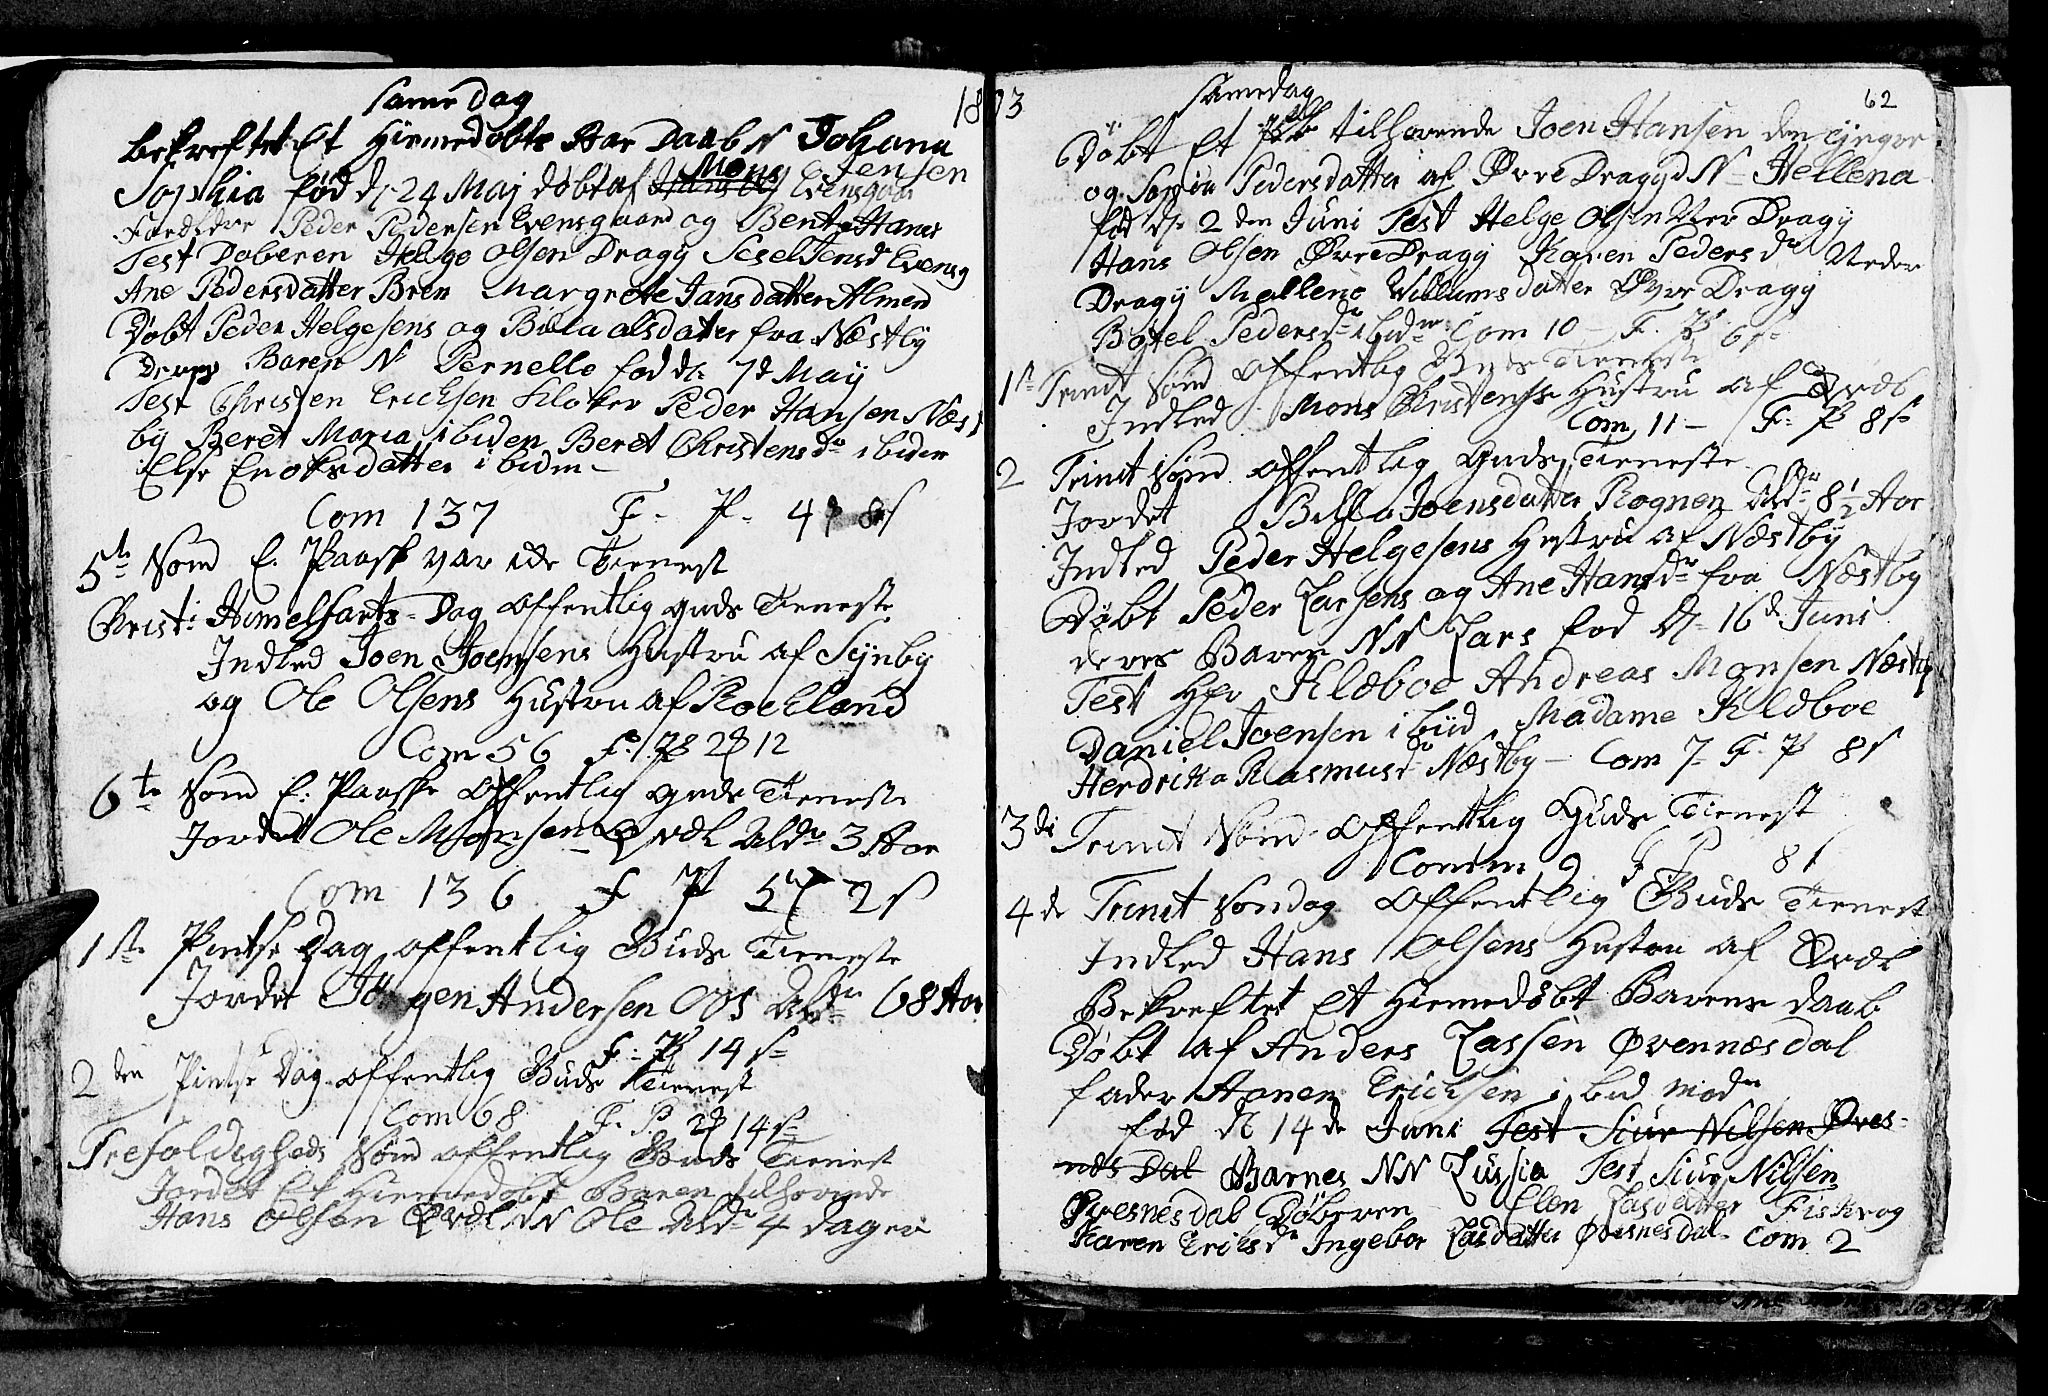 same Dag
1803
bekreftet Et Hiemedøbte Daab N Johana
Mons Jensen
Sophia fød d: 24 Maj døbt af Evensgaar
Peder Pedersen Evensgaard og Bente Hans
Test Døberen Helge Olsen Dragy Sesel Jensd Evensg
Ane Pedersdatter Bren Margrete Jansdatter Almen
Døbt Peder Helgesens og Billa alsdater fra Næstby
Deres Baren N Pernelle fød d: 7d May
Test Christen Erichsen Kloker Peder Hansen Næst
by Beret Maria ibiden Beret Christensdr ibiden
Else Enoksdatter i bidn
Com 137 F - P - 4 8 s
5te Sønd E. Paask var icke Tienest
Christi Himelfarts-Dag offentlig guds Tieneste
Indled Joen Joensens Hustru af Synby
og Ole Olsens Hustru af Rockland
Com 56 f: P 2 12
6te Sønd E: Paaske offentlig guds Tieneste
Jordet Ole Monsen Ald 3 Aar
Com 136 F P 5 2 s
1ste Pintse Dag offentlig Guds Tieneste
Jordet Jørgen Andersen Oos Aldr 68 Aar
F - P 14 s
2den Pintse Dag offentlig Guds Tienest
Com 68 F. P 2 14 s
Trefoldigheds Sønd offentlig Guds Tienest
Jordet Et Hiemedøbt Baren tilhørende
Hans Olsen NN Ole Aldr 4 dager
62
samedag
Døbt Et tilhørende Joen Hansen den yngre
og Pedersdatter af Øvre Dragy N - Hellena
fød d: 2den Juni Test Helge Olsen Dragy
Hans Olsen Øvre Dragy Karen Pedersdr Neder
Dragy Mallene Villumsdatter Øvre Dragy
Botel Pedersdr ibidn Com 10 - F. P 6 s
1st Trinit Sønd offentlig Guds Tieneste
Indled Mons Christens Hustru af
Com 11 - F- P 8 s
2 Trinit Sønd offentlig Guds Tieneste
Jordet Bille Joensdatter Rognen Aldr 8 1/2 Aar
Indled Peder Helgesens Hustru af Næstby
Døbt Peder Larsens og Ane Hansdr fra Næstby
deres Baren NN Lars fød d: 16d Juni
Test Hr Klæboe Andreas Monsen Næstby
Daniel Joensen ibid Madame Klæboe
Herdrika Rasmusd Næstby - Com 7 - F. P 8 s
3di Trinit Sønd offentlig Guds Tienest
Comm 9 F P 8 s
4de Trinit Søndag offentlig Guds Tienest
Indled Hans Olsens Hustru af
Bekreftet Et Hiemedøbt Barens daab
Døbt af Anders Lassen Øvennæsdal
fader Erichsen ibid modr
fød d: 14de Juni Test Siur Nilsen Øves-
næs Dal Barnes NN Lussia Test Siur Nilsen
Øvesnesdal Døberen Elen Lasdatter Fiskvog
Karen Eriksdr Ingebor Lasdatter Øvesnesdal Com 2